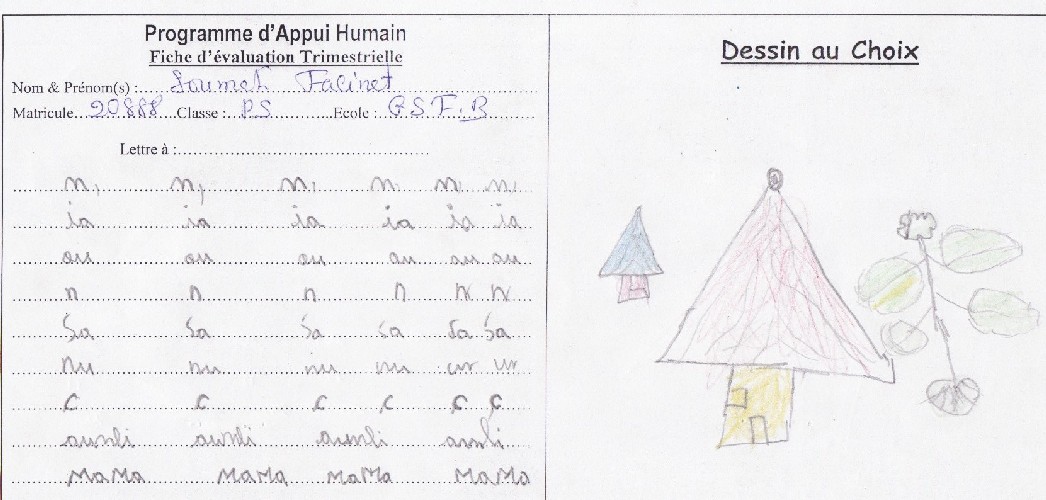 Programme d'Appui Humain
Fiche d'évaluation Trimestrielle
Nom & Prénom(s) : Soumah Facinet
Matricule 20888 Classe : PS Ecole : G.S.F.B
Lettre à :
n, n, n, n, n, n,
ia ia ia ia ia ia
ou ou ou ou ou ou
n n n n n n
Sa Sa Sa Sa Sa Sa
nu nu nu nu
c c c c c c
MaMa MaMa MaMa MaMa
Dessin au Choix